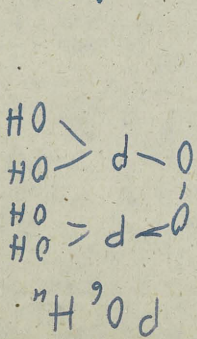 P O₆ H₄
OH
O - P < OH
O - P < OH
OH